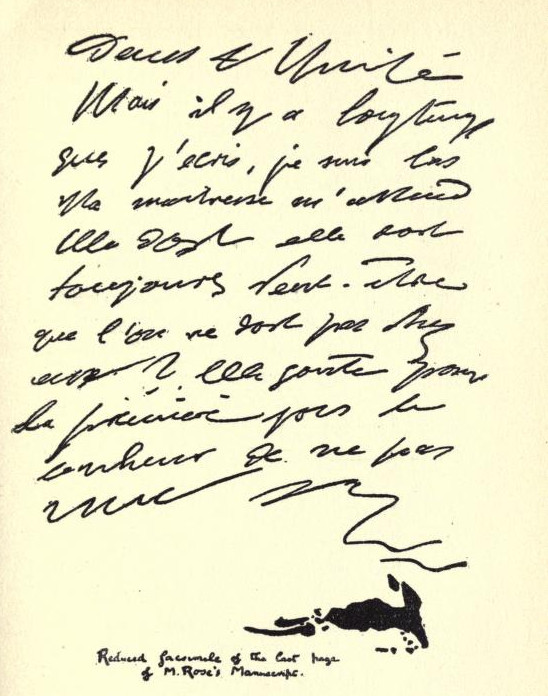 Unité
Mais il y a longtemps
que j'écris, je suis las
Ma maitresse m'attend
Elle dort elle dort
toujours Peut-être
que l'on ne dort pas chez
eux ? Elle goute pour
la première fois le
bonheur de ne pas
Reduced facsimile of the last page
of M. Rose's Manuscript.